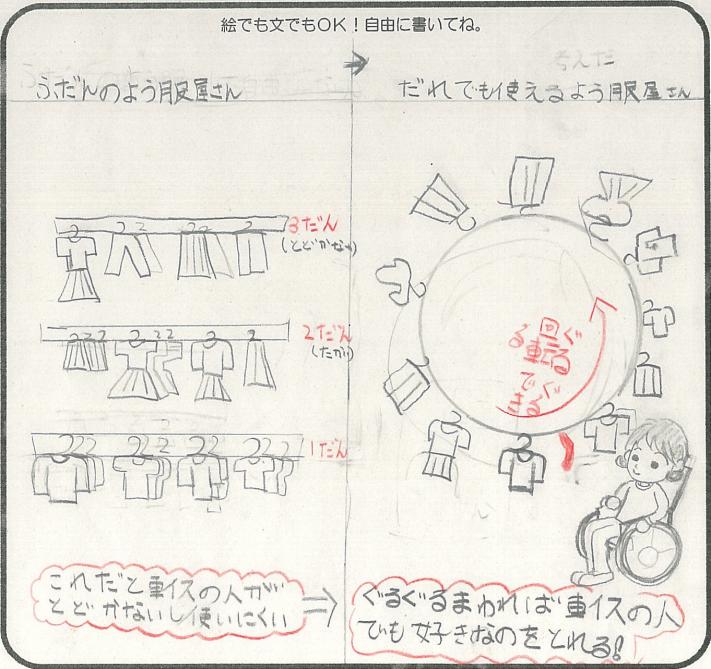 絵でも文でもOK！自由に書いてね。
ふだんのよう服屋さん
3だん
(とどかない)
2だん
(たかい)
1だん
これだと車イスの人が
とどかないし使いにくい
考えた
だれでも使えるよう服屋さん
ぐるぐる
回転
できる
ぐるぐるまわれば車イスの人
でも好きなのをとれる!